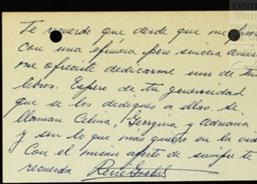 Te recuerdo que desde que me
con una efímera pero sincera
me ofreciste dedicarme uno de tus
libros. Espero de tu generosidad
que se los dediques a ellas. Se
llaman Celina, Georgina y Adriana
y son lo que más quiero en la vida
Con el mismo afecto de siempre te
recuerda René